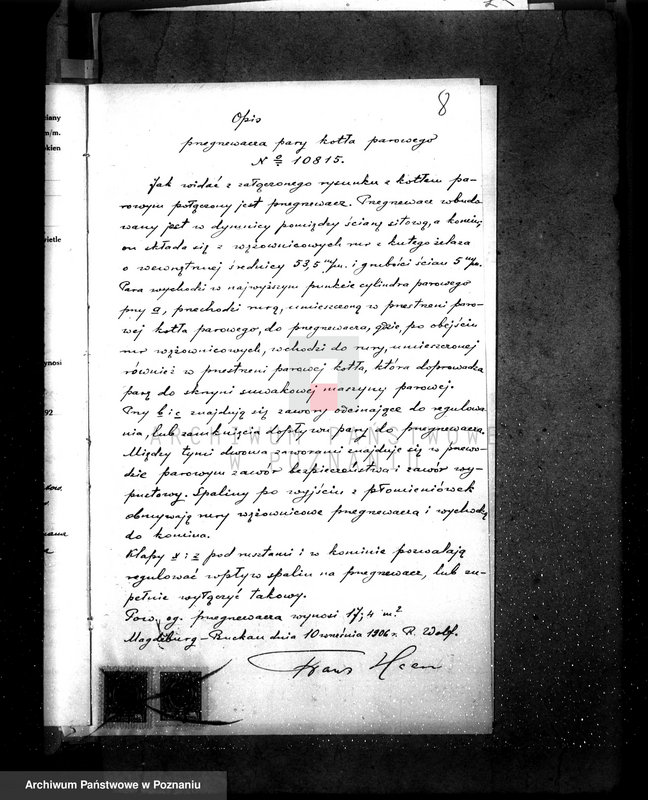 8
Opis
przegrzewacza pary kotła parowego
N o/: 10815.
Jak widać z załączonego rysunku z kotłem pa-
rowym połączony jest przegrzewacz. Przegrzewacz wbudo
wany jest w dymnicy pomiędzy ścianą sitową, a komin,
on składa się z wężownicowych rur z kutego żelaza
o wewnętrznej średnicy 53,5 m/m. i grubości ścian 5 m/m.
Para wychodzi w najwyższym punkcie cylindra parowego
przy a, przechodzi rurą, umieszczoną w przestrzeni paro-
wej kotła parowego, do przegrzewacza, gdzie, po obejściu
rur wężownicowych, wchodzi do rury, umieszczonej
również w przestrzeni parowej kotła, która doprowadza
parę do skrzyni suwakowej maszyny parowej.
Przy b i c znajdują się zawory odcinające do regulowa
nia, lub zamknięcia dopływu pary do przegrzewacza.
Między tymi dwoma zaworami znajduje się w przewo-
dzie parowym zawór bezpieczeństwa i zawór wy-
pustowy. Spaliny po wyjściu z płomieniówek
obmywają rury wężownicowe przegrzewacza i wychodzą
do komina.
Klapy x i z pod rusztami i w kominie pozwalają
regulować wpływ spalin na przegrzewacz, lub zu-
pełnie wyłączyć takowy.
Pow. og. przegrzewacza wynosi 17,4 m.2
Magdeburg-Buckau dnia 10 września 1906 r. R. Wolf.
Franz
ciany
m/m.
okien
wietle
ynosi
92
ARCHIWUM PAŃSTWOWE
W POZNANIU
Archiwum Państwowe w Poznaniu